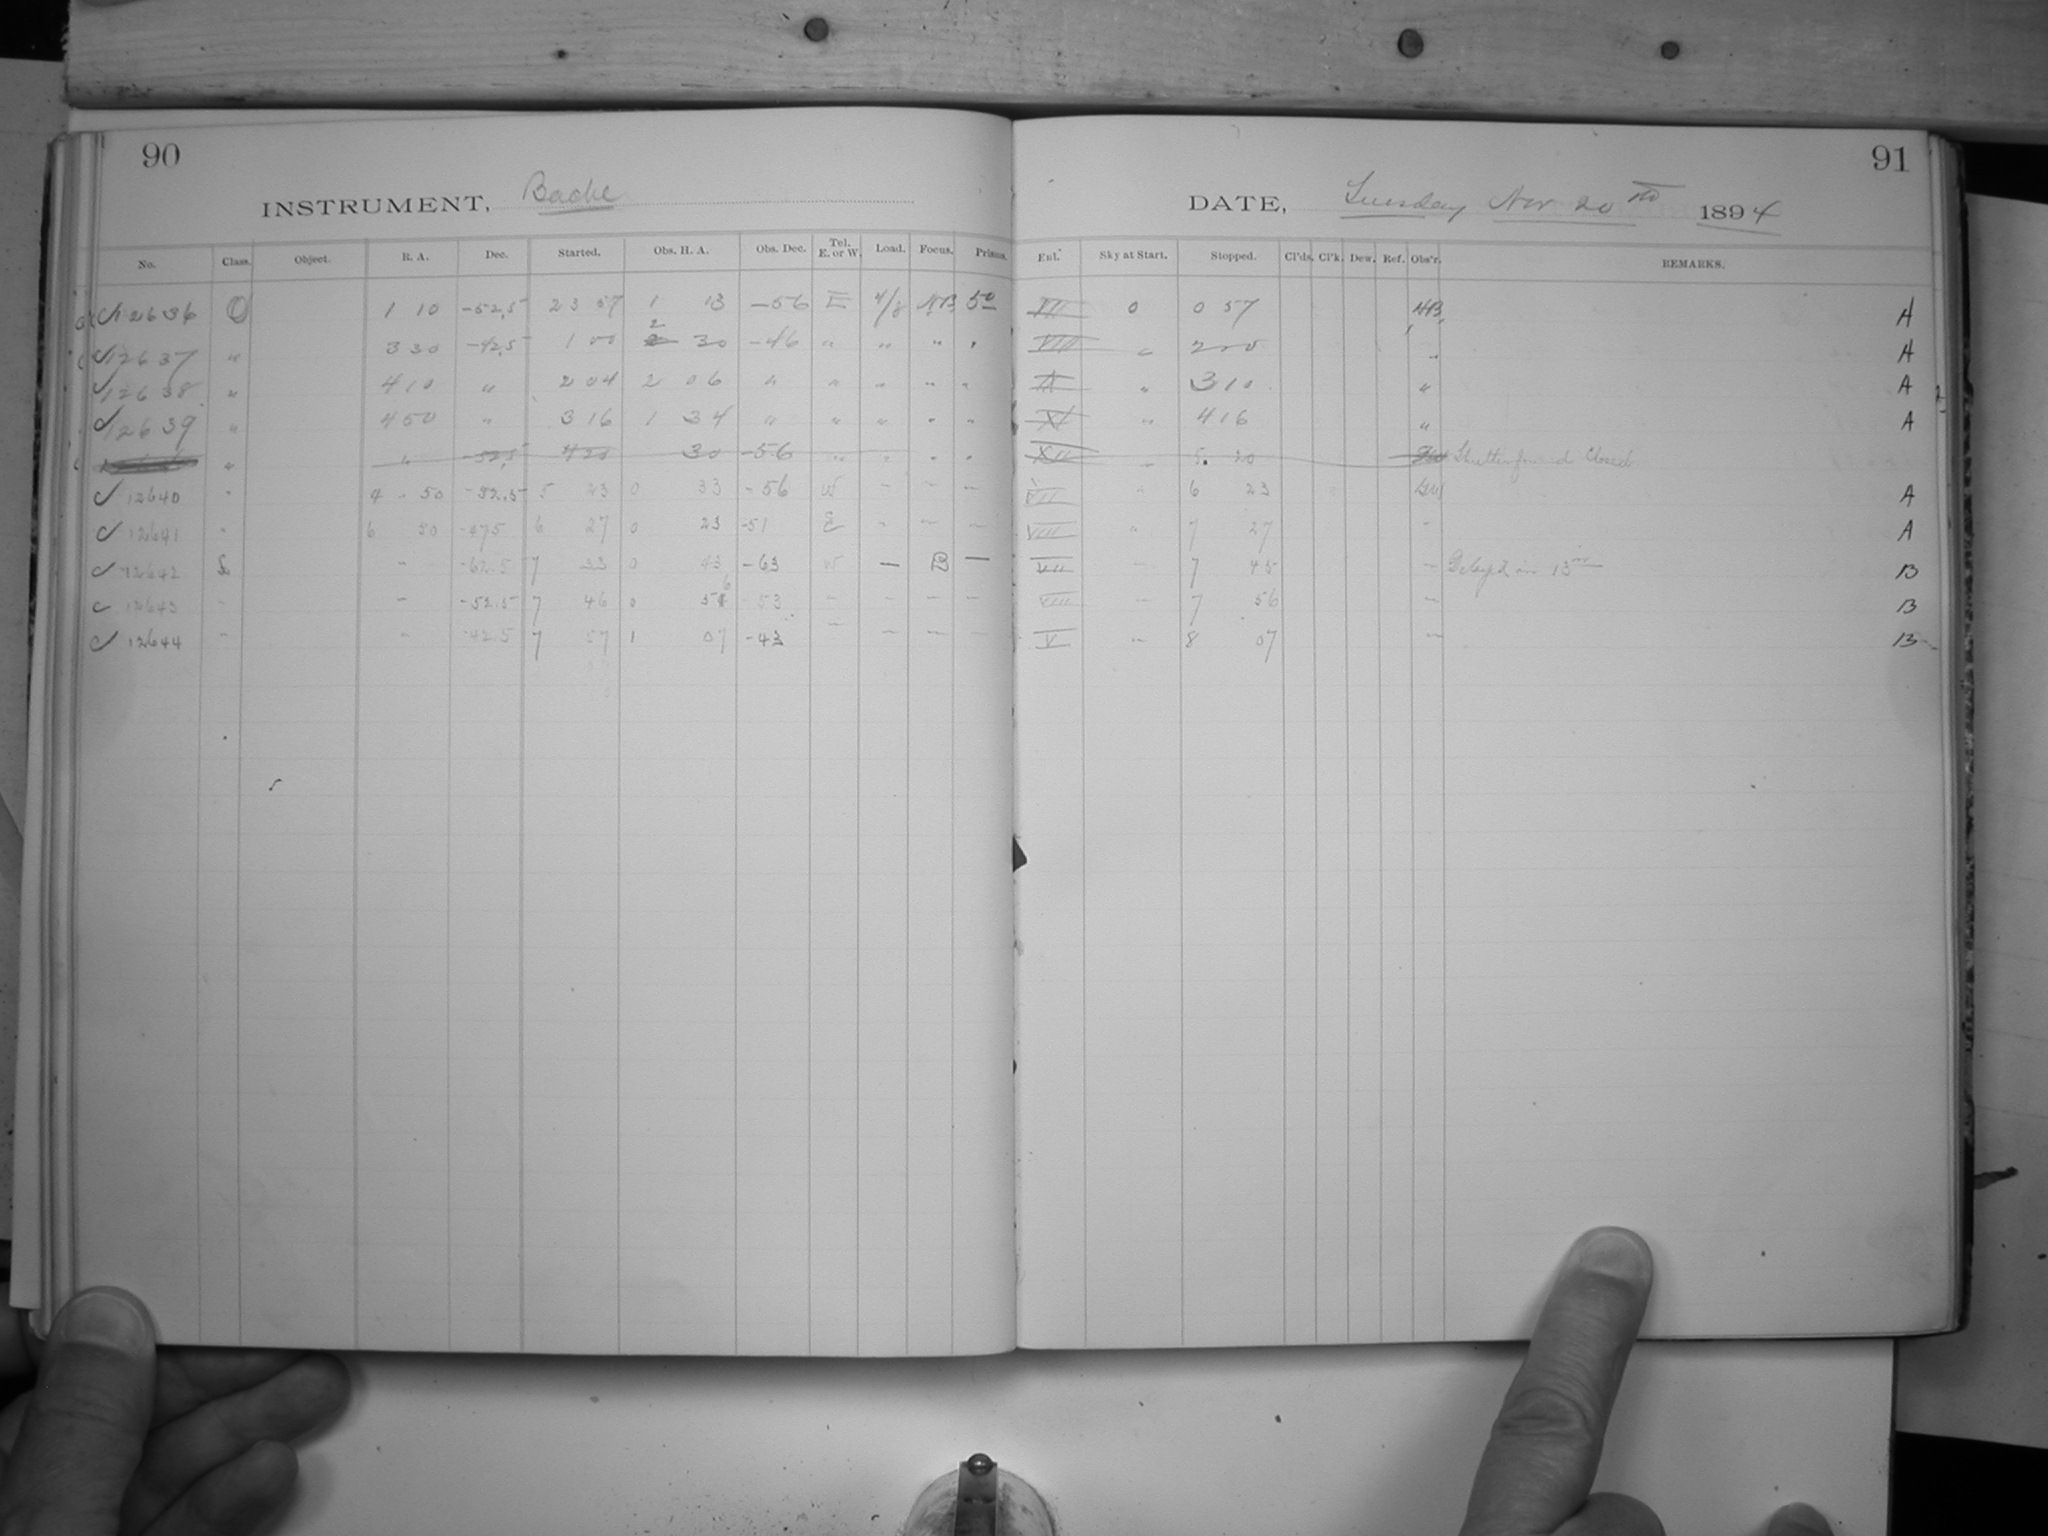 90
INSTRUMENT, Bache
No. Class. Object. R. A. Dec. Started. Obs. H. A. Obs. Dec. Tel. E. or W. Load. Focus. Prisms.
✓ 12636 O 1 10 -52.5 23 57 1 13 -56 E 4/8 NB 50
✓ 12637 " 3 30 -42.5 1 00 2 30 -46 " " " "
✓ 12638 " 4 10 " 2 04 2 06 " " " " "
✓ 12639 " 4 50 " 3 16 1 34 " " " " "
" " -52.5 4 20 30 -56 " " " "
✓ 12640 " 4 50 -52.5 5 23 0 33 -56 W " " "
✓ 12641 " 6 50 -47.5 6 27 0 23 -51 E " " "
✓ 12642 L " -62.5 7 33 0 43 -63 W — B —
✓ 12643 " " -52.5 7 46 0 56 -53 " " " "
✓ 12644 " " -42.5 7 57 1 07 -43 " " " "
91
DATE, Tuesday Nov 20th 1894
Exl. Sky at Start. Stopped. Cl'ds. Cl'k. Dew. Ref. Obs'r. REMARKS.
0 0 57 A
VIII " 2 00 " A
" 3 10 " A
XI " 4 16 " A
XII " 5 20 Shutter found Closed
VII " 6 23 A
VIII " 7 27 " A
VII " 7 45 " 13m B
VIII " 7 56 " B
V " 8 07 " B